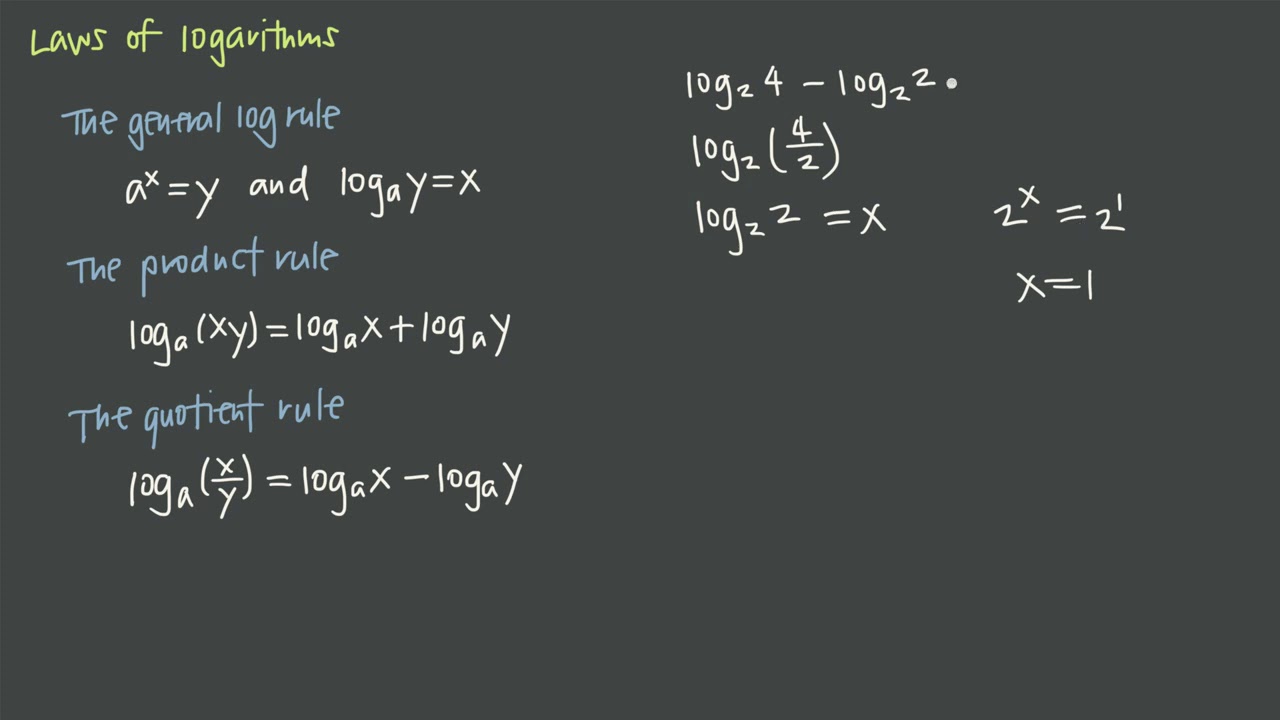 Laws of logarithms
The general log rule
aˣ = y and logₐy = x
The product rule
logₐ(xy) = logₐx + logₐy
The quotient rule
logₐ(x/y) = logₐx − logₐy
log₂4 − log₂2
log₂(4/2)
log₂2 = x
2ˣ = 2¹
x = 1